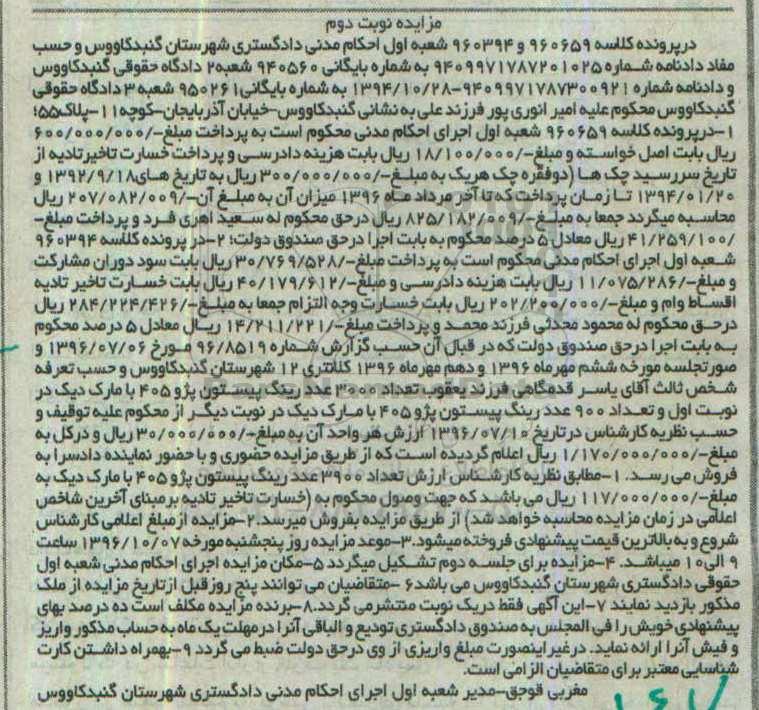 مزایده نوبت دوم
درپرونده کلاسه ۹۶۰۶۵۹ و ۹۶۰۳۹۴ شعبه اول احکام مدنی دادگستری شهرستان گنبدکاووس و حسب
مفاد دادنامه شماره ۹۴۰۹۹۷۱۷۸۷۲۰۱۰۲۵ به شماره بایگانی ۹۴۰۵۶۰ شعبه۲ دادگاه حقوقی گنبدکاووس
و دادنامه شماره ۹۴۰۹۹۷۱۷۸۷۳۰۰۹۲۱-۱۳۹۴/۱۰/۲۸ به شماره بایگانی۹۵۰۲۶۱ شعبه۳ دادگاه حقوقی
گنبدکاووس محکوم علیه امیر انوری پور فرزند علی به نشانی گنبدکاووس-خیابان آذربایجان-کوچه۱۱-پلاک۵۵؛
۱-درپرونده کلاسه ۹۶۰۶۵۹ شعبه اول اجرای احکام مدنی محکوم است به پرداخت مبلغ-/۶۰۰/۰۰۰/۰۰۰
ریال بابت اصل خواسته و مبلغ-/۱۸/۱۰۰/۰۰۰ ریال بابت هزینه دادرسی و پرداخت خسارت تاخیرتادیه از
تاریخ سررسید چک ها (دوفقره چک هریک به مبلغ-/۳۰۰/۰۰۰/۰۰۰ ریال به تاریخ های۱۳۹۲/۹/۱۸ و
۱۳۹۴/۰۱/۲۰ تا زمان پرداخت که تا آخر مرداد ماه ۱۳۹۶ میزان آن به مبلغ آن-/۲۰۷/۰۸۲/۰۰۹ ریال
محاسبه میگردد جمعا به مبلغ-/۸۲۵/۱۸۲/۰۰۹ ریال درحق محکوم له سعید اهری فرد و پرداخت مبلغ-
/۴۱/۲۵۹/۱۰۰ ریال معادل ۵ درصد محکوم به بابت اجرا درحق صندوق دولت؛ ۲-در پرونده کلاسه ۹۶۰۳۹۴
شعبه اول اجرای احکام مدنی محکوم است به پرداخت مبلغ-/۳۰/۷۶۹/۵۲۸ ریال بابت سود دوران مشارکت
و مبلغ-/۱۱/۰۷۵/۲۸۶ ریال بابت هزینه دادرسی و مبلغ-/۴۰/۱۷۹/۶۱۲ ریال بابت خسارت تاخیر تادیه
اقساط وام و مبلغ-/۲۰۲/۲۰۰/۰۰۰ ریال بابت خسارت وجه التزام جمعا به مبلغ-/۲۸۴/۲۲۴/۴۲۶ ریال
درحق محکوم له محمود محدثی فرزند محمد و پرداخت مبلغ-/۱۴/۲۱۱/۲۲۱ ریال معادل ۵ درصد محکوم
به بابت اجرا درحق صندوق دولت که در قبال آن حسب گزارش شماره ۹۶/۸۵۱۹ مورخ ۱۳۹۶/۰۷/۰۶ و
صورتجلسه مورخه ششم مهرماه ۱۳۹۶ و دهم مهرماه ۱۳۹۶ کلانتری ۱۲ شهرستان گنبدکاووس و حسب تعرفه
شخص ثالث آقای یاسر قدمگاهی فرزند یعقوب تعداد ۳۰۰۰ عدد رینگ پیستون پژو ۴۰۵ با مارک دیک در
نوبت اول و تعداد ۹۰۰ عدد رینگ پیستون پژو ۴۰۵ با مارک دیک در نوبت دیگر از محکوم علیه توقیف و
حسب نظریه کارشناس درتاریخ ۱۳۹۶/۰۷/۱۰ ارزش هر واحد آن به مبلغ-/۳۰/۰۰۰/۰۰۰ ریال و درکل به
مبلغ-/۱/۱۷۰/۰۰۰/۰۰۰ ریال اعلام گردیده است که از طریق مزایده حضوری و با حضور نماینده دادسرا به
فروش می رسد. ۱-مطابق نظریه کارشناس ارزش تعداد ۳۹۰۰ عدد رینگ پیستون پژو ۴۰۵ با مارک دیک به
مبلغ-/۱۱۷/۰۰۰/۰۰۰ ریال می باشد که جهت وصول محکوم به (خسارت تاخیر تادیه برمبنای آخرین شاخص
اعلامی در زمان مزایده محاسبه خواهد شد) از طریق مزایده بفروش میرسد.۲-مزایده از مبلغ اعلامی کارشناس
شروع و به بالاترین قیمت پیشنهادی فروخته میشود.۳-موعد مزایده روز پنجشنبه مورخه ۱۳۹۶/۱۰/۰۷ ساعت
۹ الی۱۰ میباشد. ۴-مزایده برای جلسه دوم تشکیل میگردد ۵-مکان مزایده اجرای احکام مدنی شعبه اول
حقوقی دادگستری شهرستان گنبدکاووس می باشد۶ -متقاضیان می توانند پنج روز قبل ازتاریخ مزایده از ملک
مذکور بازدید نمایند ۷-این آگهی فقط دریک نوبت منتشرمی گردد.۸-برنده مزایده مکلف است ده درصد بهای
پیشنهادی خویش را فی المجلس به صندوق دادگستری تودیع و الباقی آنرا درمهلت یک ماه به حساب مذکور واریز
و فیش آنرا ارائه نماید. درغیر اینصورت مبلغ واریزی از وی درحق دولت ضبط می گردد ۹-بهمراه داشتن کارت
شناسایی معتبر برای متقاضیان الزامی است.
مغربی قوجق-مدیر شعبه اول اجرای احکام مدنی دادگستری شهرستان گنبدکاووس